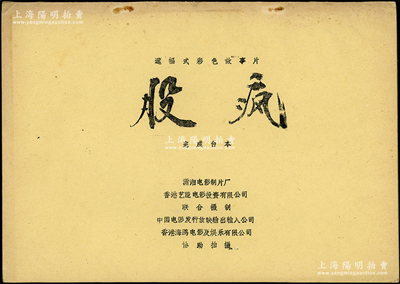 上海阳明拍卖
www.yangmingauction.com
遮幅式彩色故事片
股疯
完成台本
潇湘电影制片厂
香港艺能电影投资有限公司
联合摄制
中国电影发行放映输出输入公司
香港海鸿电影及娱乐有限公司
协助拍摄